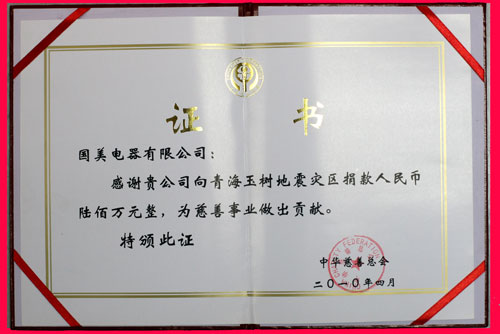 证 书
国美电器有限公司：
感谢贵公司向青海玉树地震灾区捐款人民币
陆佰万元整，为慈善事业做出贡献。
特颁此证
中华慈善总会
二〇一〇年四月